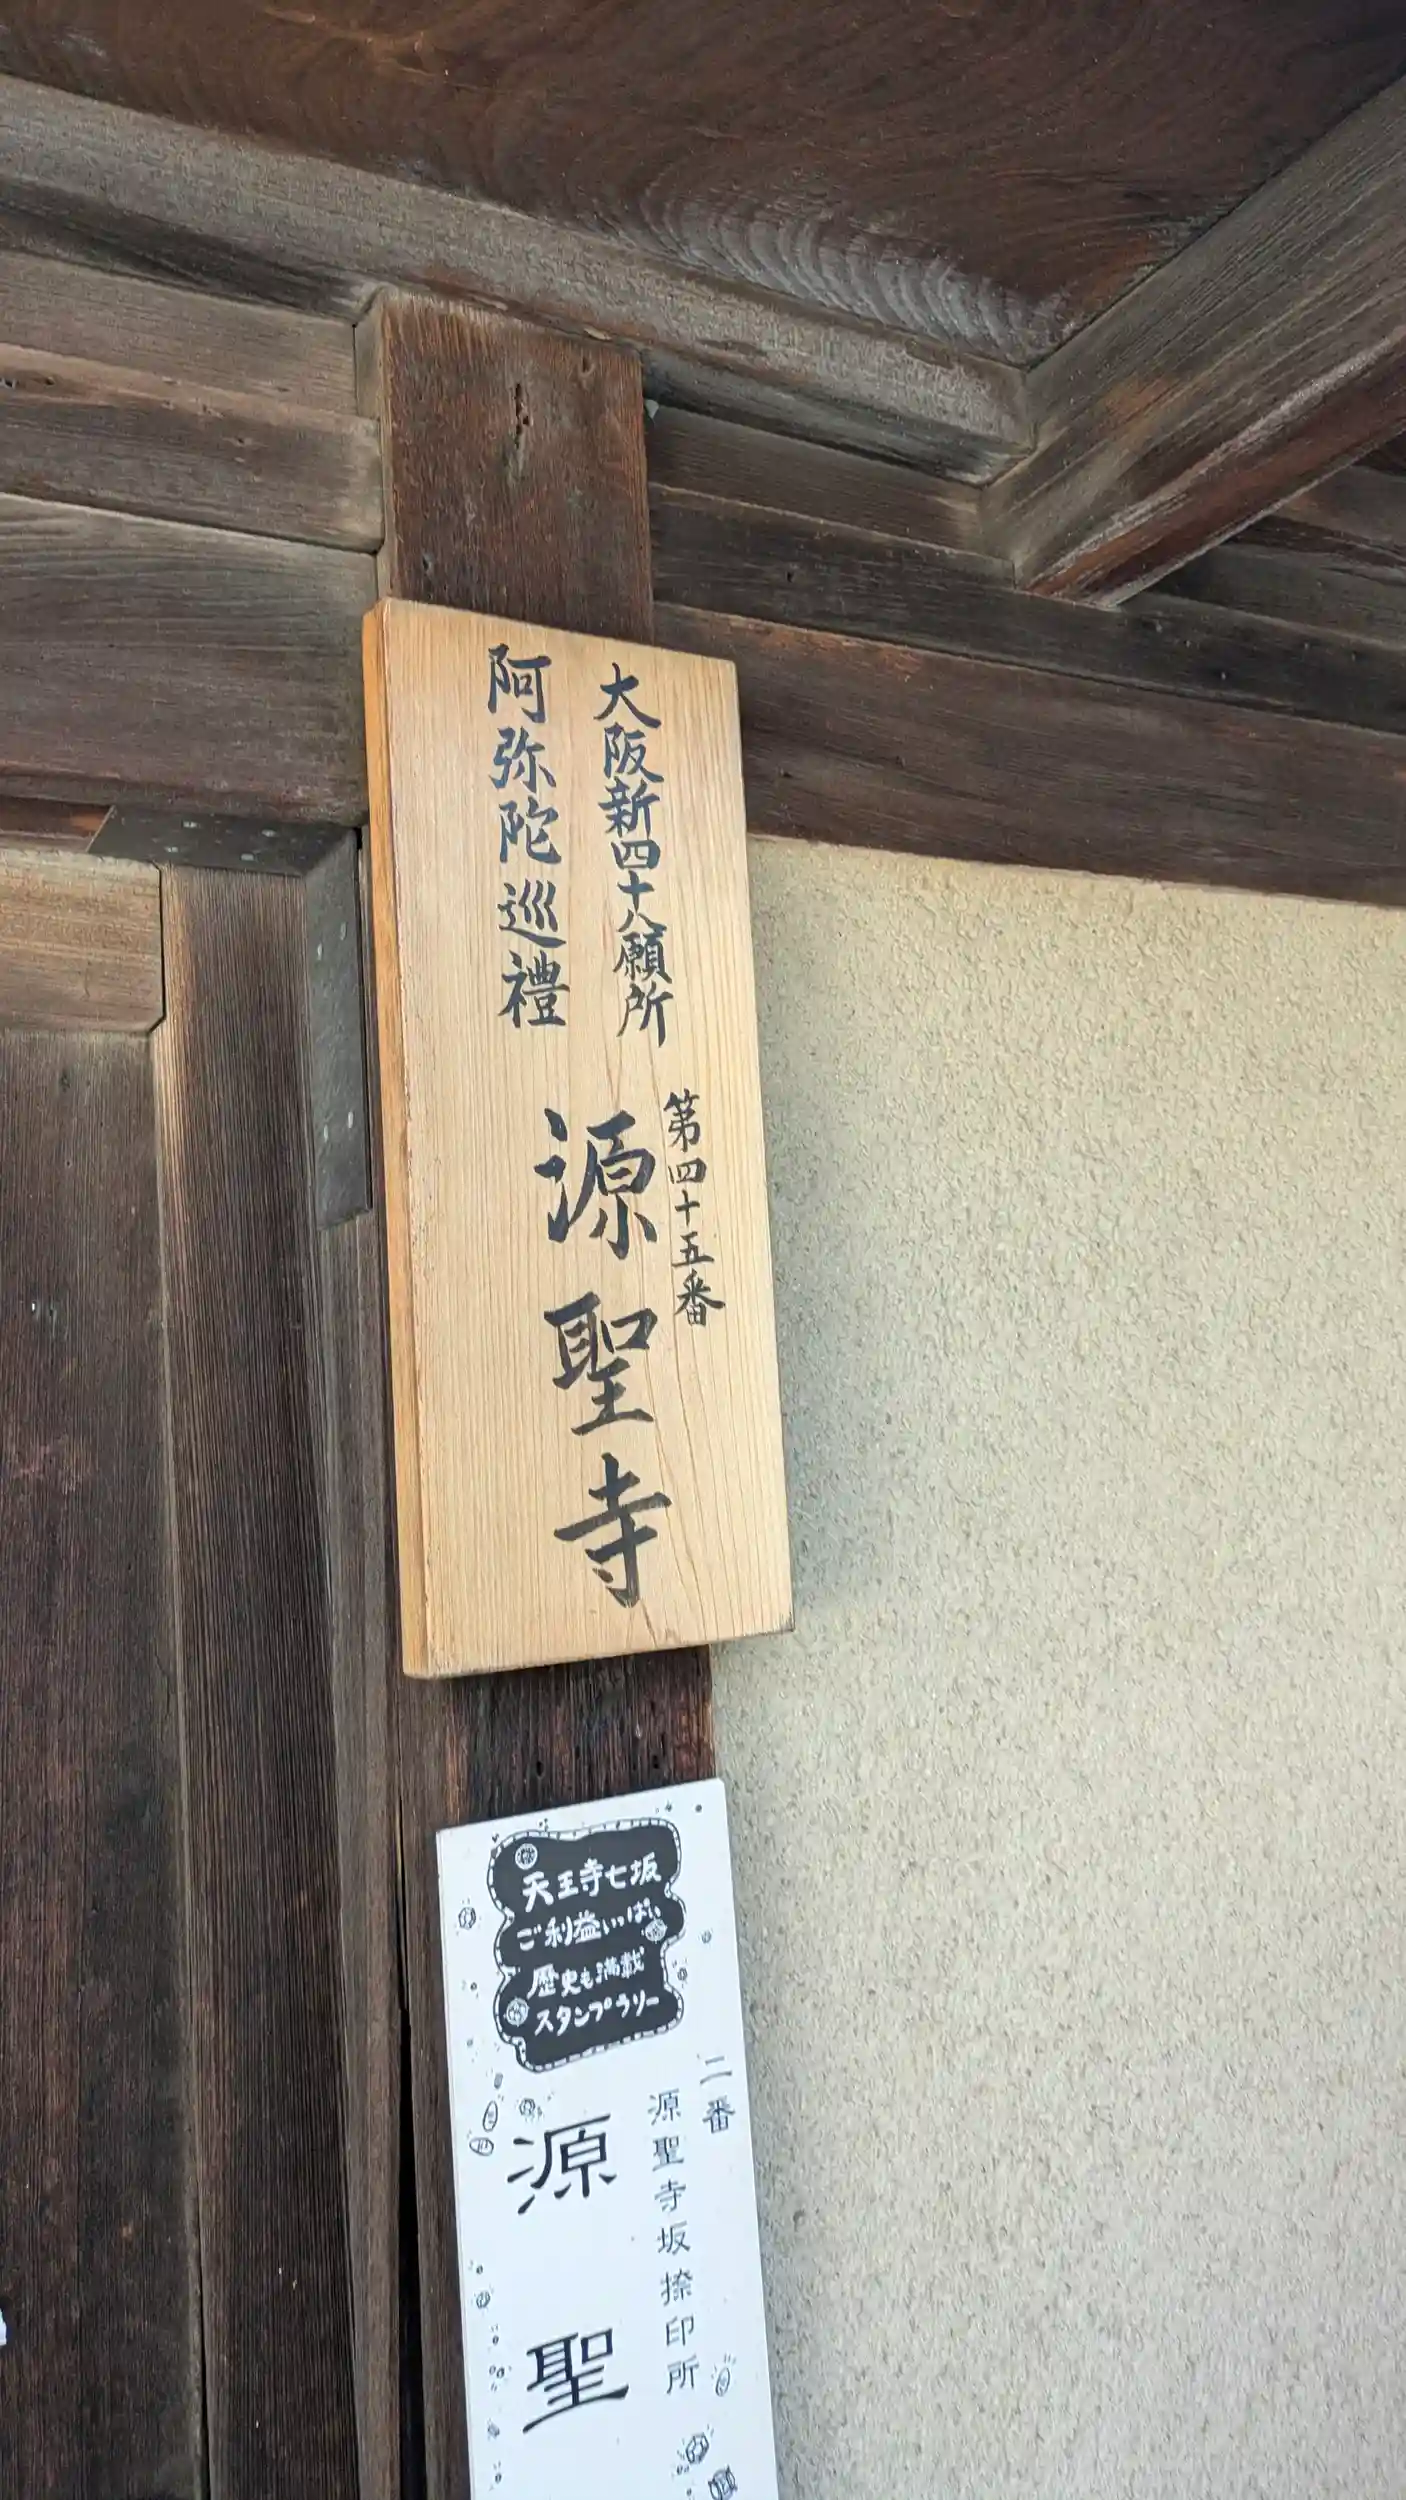 大阪新四十八願所
阿弥陀巡禮
第四十五番
源聖寺
天王寺七坂
ご利益いっぱい
歴史も満載
スタンプラリー
二番
源聖寺坂捺印所
源聖